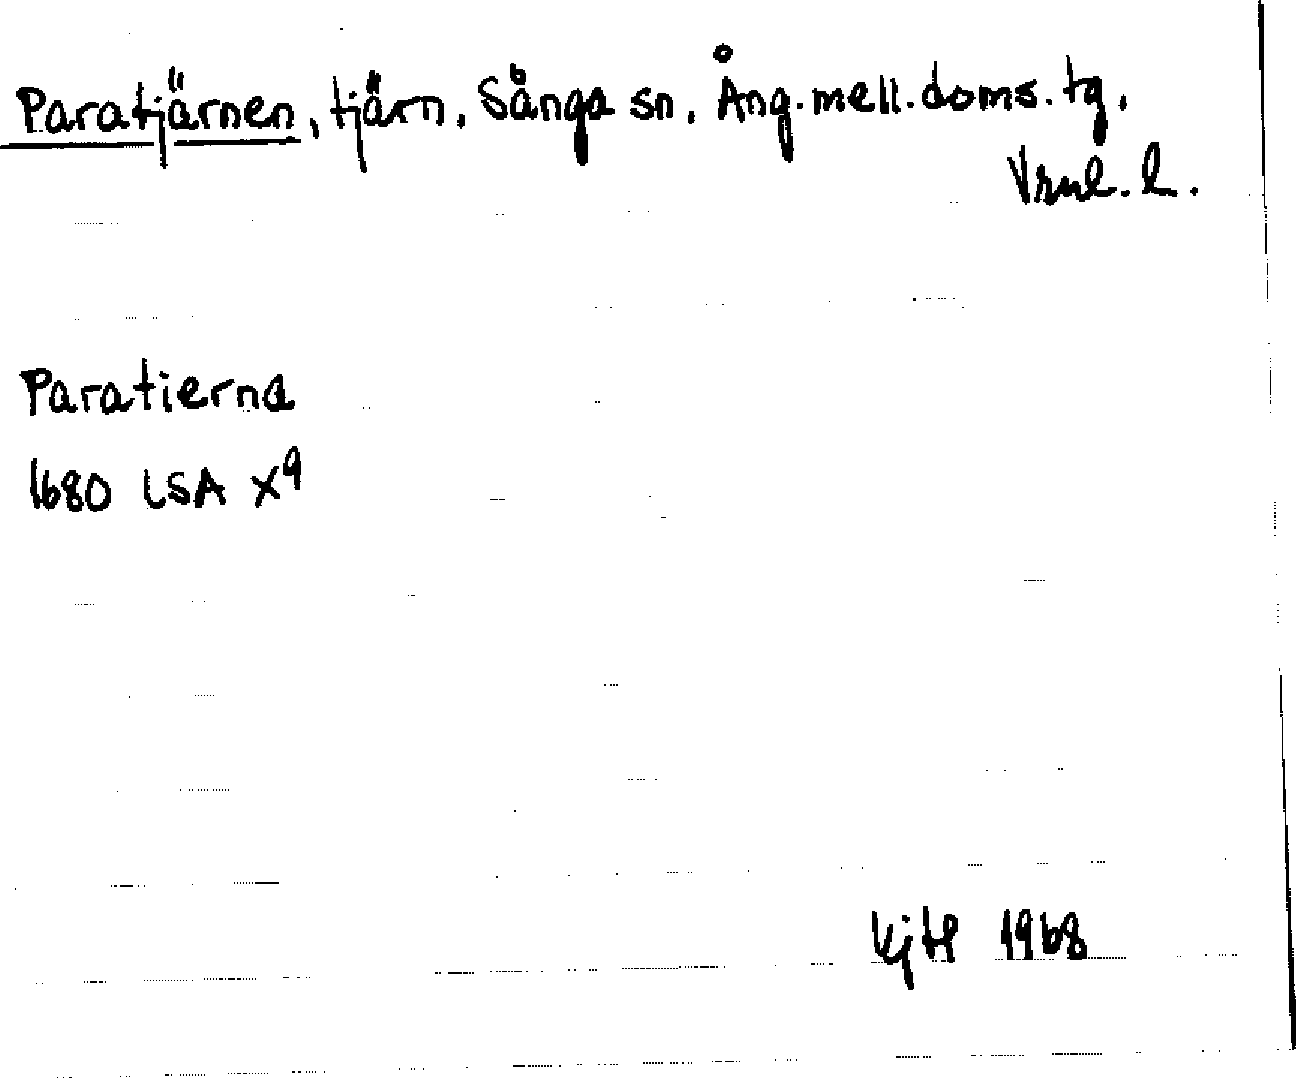 Paratjärnen, tjärn, Sånga sn, Ång. mell. doms. tg,
Vrnl. l.
Paratierna
1680 LSA X9
1968